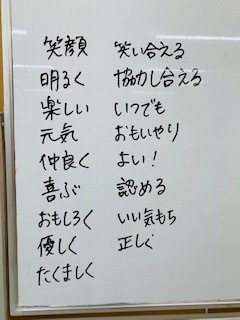 笑顔
明るく
楽しい
元気
仲良く
喜ぶ
おもしろく
優しく
たくましく
笑い合える
協力し合える
いつでも
おもいやり
よい!
認める
いい気もち
正しく